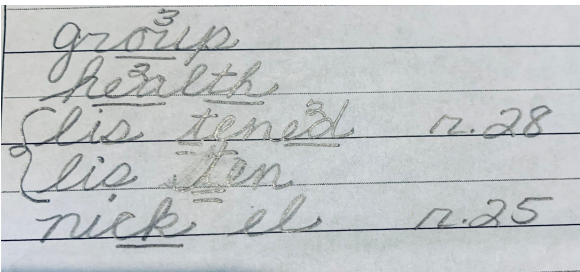 group 3
health 2
lis tened 3 r.28
lis ten
nick el r.25